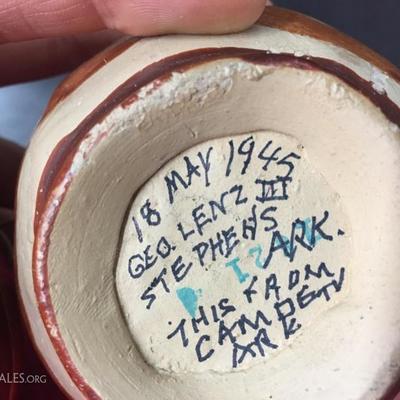 18 MAY 1945
GEO. LENZ III
STEPHENS
ARK.
THIS FROM
CAMDEN
ARK
ALES.ORG